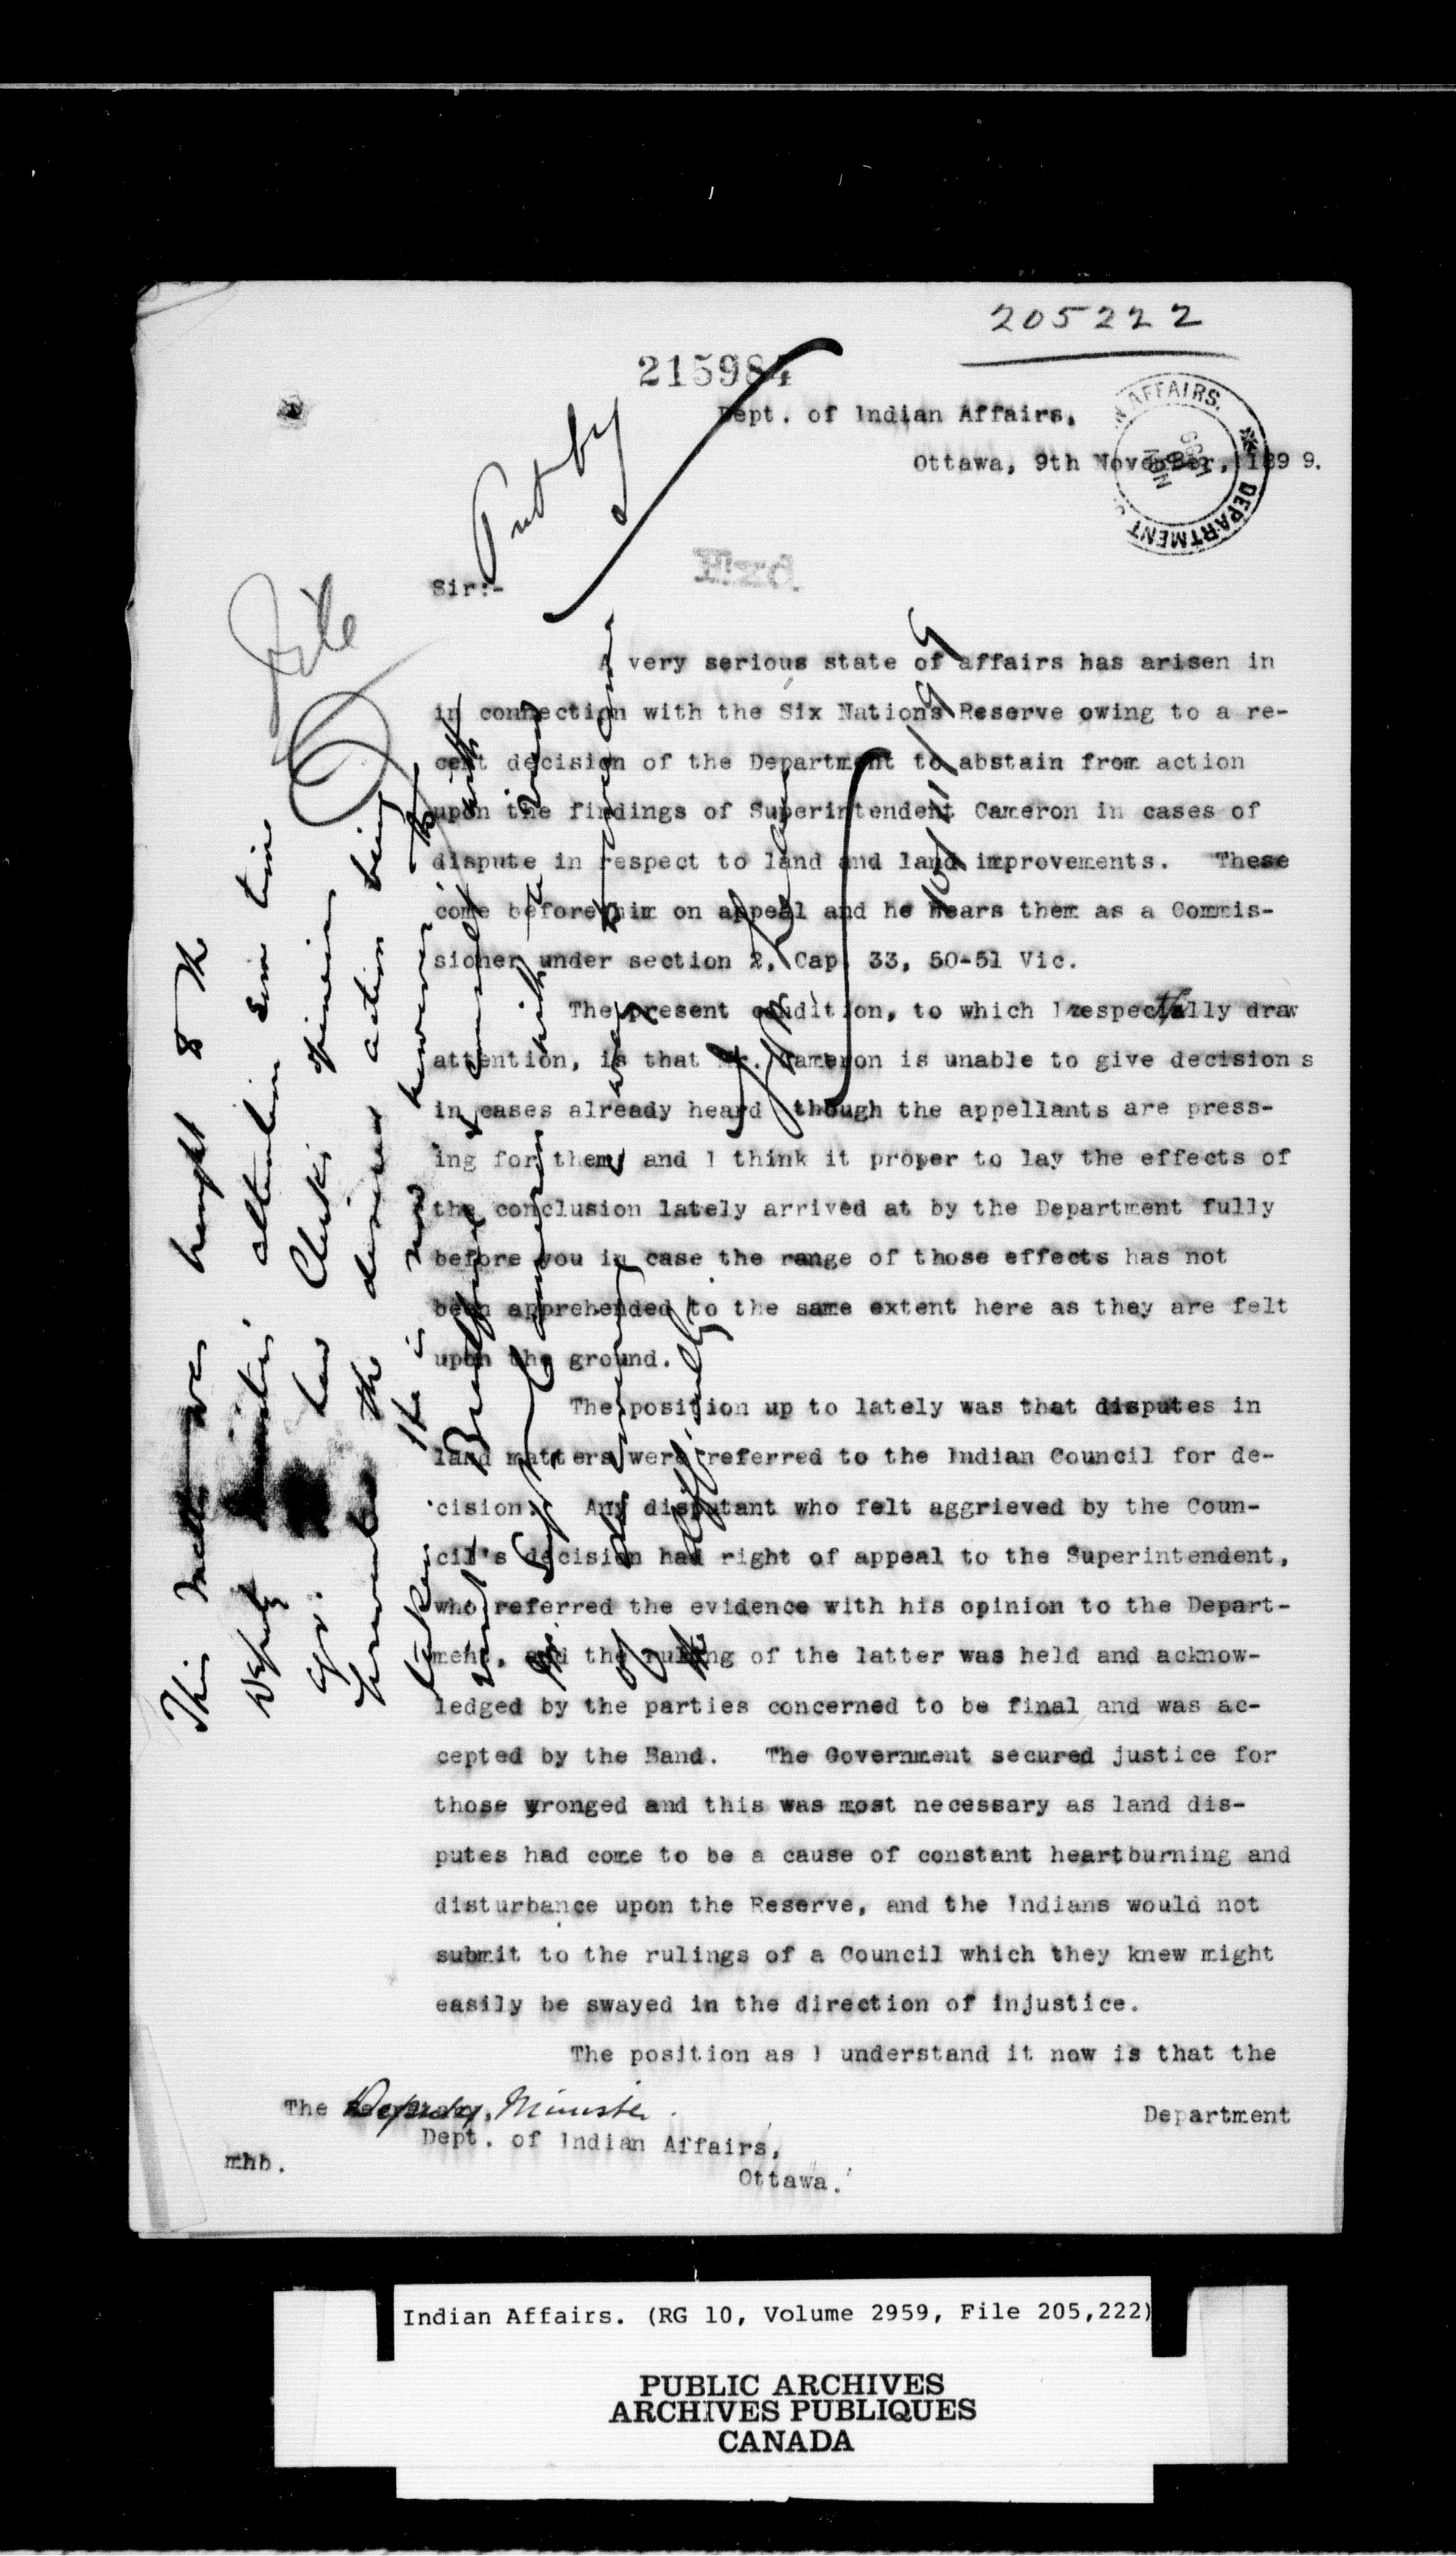 205222
215984
Dept. of Indian Affairs,
Ottawa, 9th November, 1899.
N AFFAIRS.
DEPARTMENT
NOV
Put by
File
Sir:-
A very serious state of affairs has arisen in
in connection with the Six Nations Reserve owing to a re-
cent decision of the Department to abstain from action
upon the findings of Superintendent Cameron in cases of
dispute in respect to land and land improvements. These
come before him on appeal and he hears them as a Commis-
sioner under section 2, Cap. 33, 50-51 Vic.
The present condition, to which I respectfully draw
attention, is that Mr. Cameron is unable to give decision s
in cases already heard though the appellants are press-
ing for them, and I think it proper to lay the effects of
the conclusion lately arrived at by the Department fully
before you in case the range of those effects has not
been apprehended to the same extent here as they are felt
upon the ground.
The position up to lately was that disputes in
land matters were referred to the Indian Council for de-
cision. Any disputant who felt aggrieved by the Coun-
cil's decision had right of appeal to the Superintendent,
who referred the evidence with his opinion to the Depart-
ment, and the ruling of the latter was held and acknow-
ledged by the parties concerned to be final and was ac-
cepted by the Band. The Government secured justice for
those wronged and this was most necessary as land dis-
putes had come to be a cause of constant heartburning and
disturbance upon the Reserve, and the Indians would not
submit to the rulings of a Council which they knew might
easily be swayed in the direction of injustice.
The position as I understand it now is that the
Department
The Deputy Minister
Dept. of Indian Affairs,
Ottawa.
mhb.
This matter was brought to the
Deputy Minister's attention some time
ago. Law Clerk's opinion
the desired action being
taken. He is now however to
10/11/99
Indian Affairs. (RG 10, Volume 2959, File 205,222)
PUBLIC ARCHIVES
ARCHIVES PUBLIQUES
CANADA